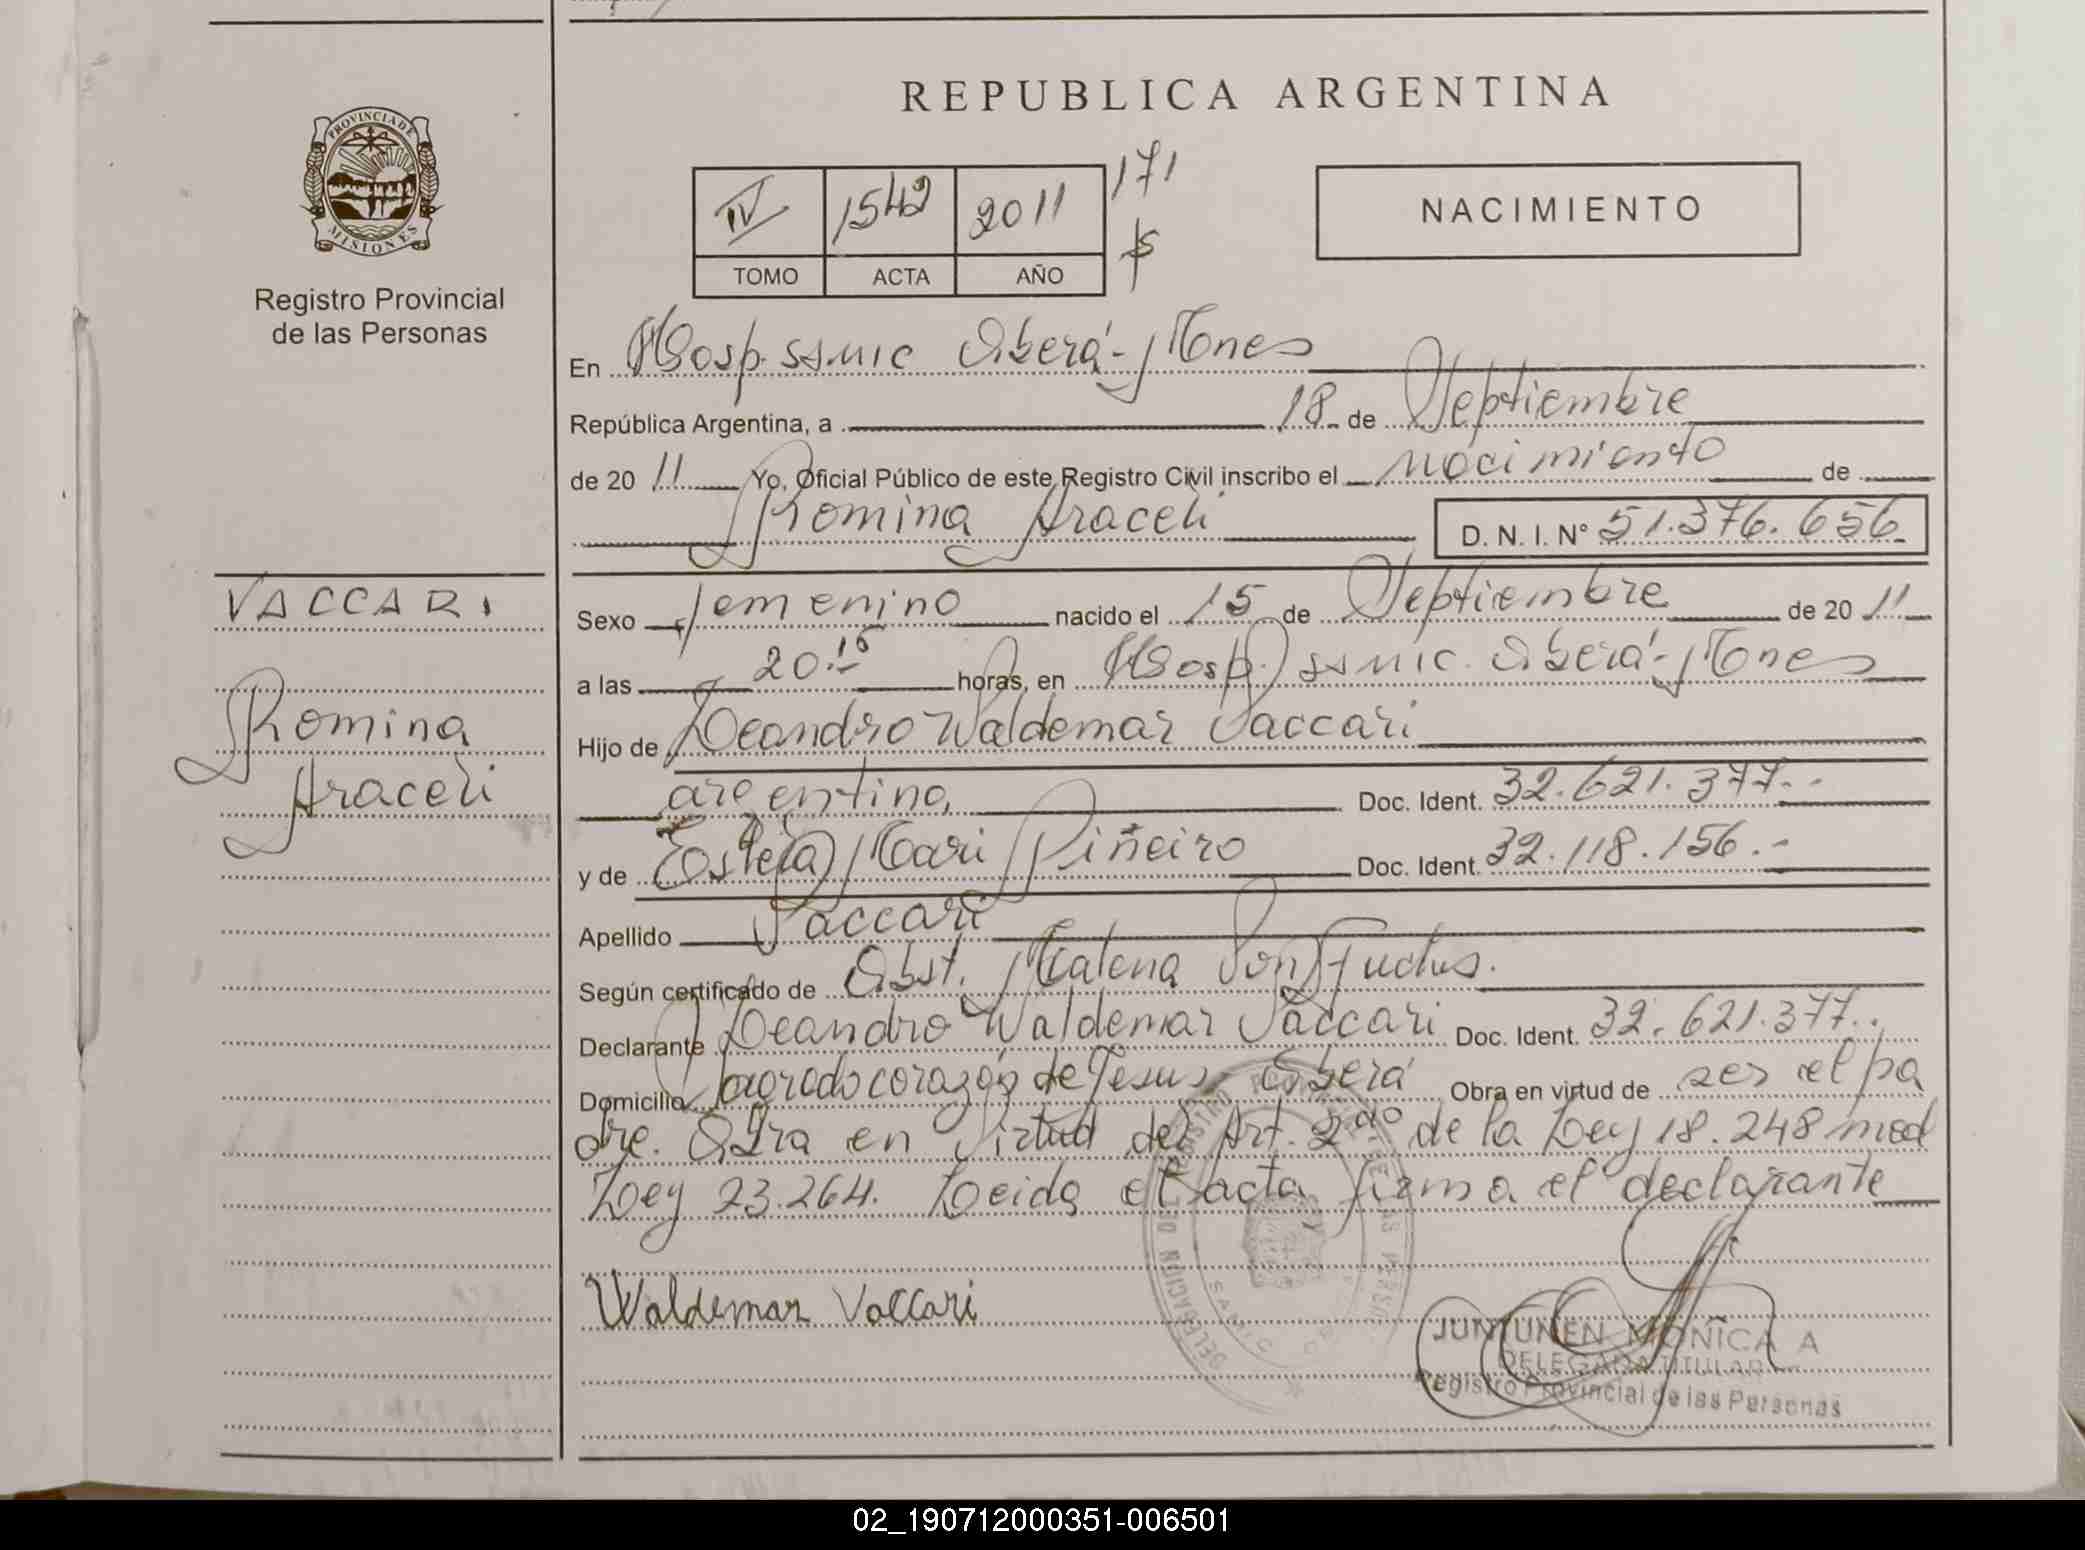 REPUBLICA ARGENTINA
PROVINCIA DE MISIONES
Registro Provincial
de las Personas
IV 1542 2011 171
TOMO ACTA AÑO
NACIMIENTO
En Hosp. SSMIC Oberá - Mnes
República Argentina, a 18 de Septiembre
de 20 11 Yo, Oficial Público de este Registro Civil inscribo el nacimiento de
Romina Araceli D. N. I. N° 51.376.656
VACCARI
Romina
Araceli
Sexo femenino nacido el 15 de Septiembre de 20 11
a las 20.15 horas, en Hosp. SSMIC. Oberá - Mnes
Hijo de Leandro Waldemar Vaccari
argentino, Doc. Ident. 32.621.377.-
y de Estela Mari Piñeiro Doc. Ident. 32.118.156.-
Apellido Vaccari
Según certificado de Obst. Malena
Declarante Leandro Waldemar Vaccari Doc. Ident. 32.621.377.
Domicilio Sagrado corazón de Jesus, Oberá Obra en virtud de ser el pa
dre. Obra en virtud del Art. 2do de la Ley 18.248 mod
Ley 23.264. Leida el acta firma el declarante
Waldemar Vaccari
JUNTUNEN MONICA A
DELEGADA TITULAR
Registro Provincial de las Personas
02_190712000351-006501